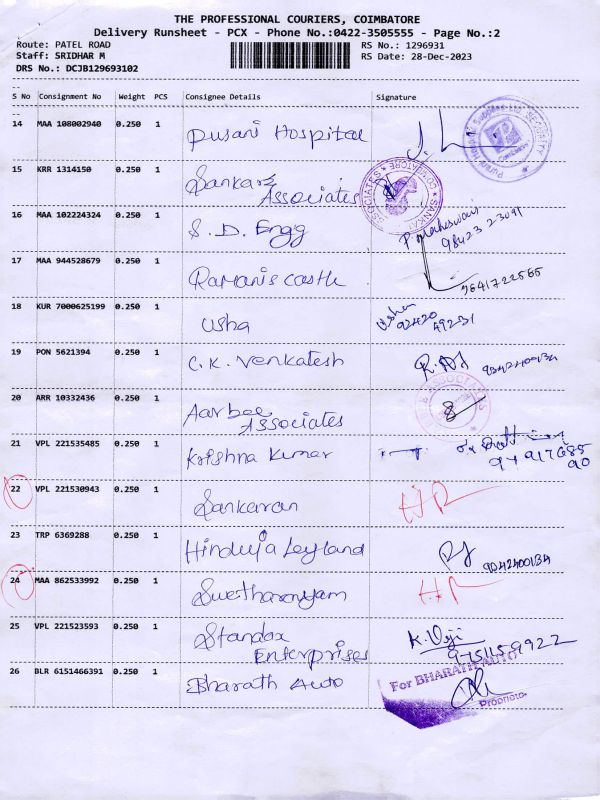 THE PROFESSIONAL COURIERS, COIMBATORE
Delivery Runsheet - PCX - Phone No.:0422-3505555 - Page No.:2
Route: PATEL ROAD RS No.: 1296931
Staff: SRIDHAR M RS Date: 28-Dec-2023
DRS No.: DCJB129693102
S No Consignment No Weight PCS Consignee Details Signature
14 MAA 108002940 0.250 1 Pusani Hospital
15 KRR 1314150 0.250 1 Sankara
Associates
16 MAA 102224324 0.250 1 S. D. Engg P. Maheswari
98423 23091
17 MAA 944528679 0.250 1 Ramanis castle 9641722565
18 KUR 7000625199 0.250 1 Usha Usha
92420
49231
19 PON 5621394 0.250 1 C. K. Venkatesh
20 ARR 10332436 0.250 1 Aarbee
Associates
21 VPL 221535485 0.250 1 Krishna Kumar
22 VPL 221530943 0.250 1 Sankaran
23 TRP 6369288 0.250 1 Hinduja Leyland
24 MAA 862533992 0.250 1 Swetharanyam
25 VPL 221523593 0.250 1 Standox
Enterprises K. Viji
9751159922
26 BLR 6151466391 0.250 1 Bharath Auto For BHARATH AUTO